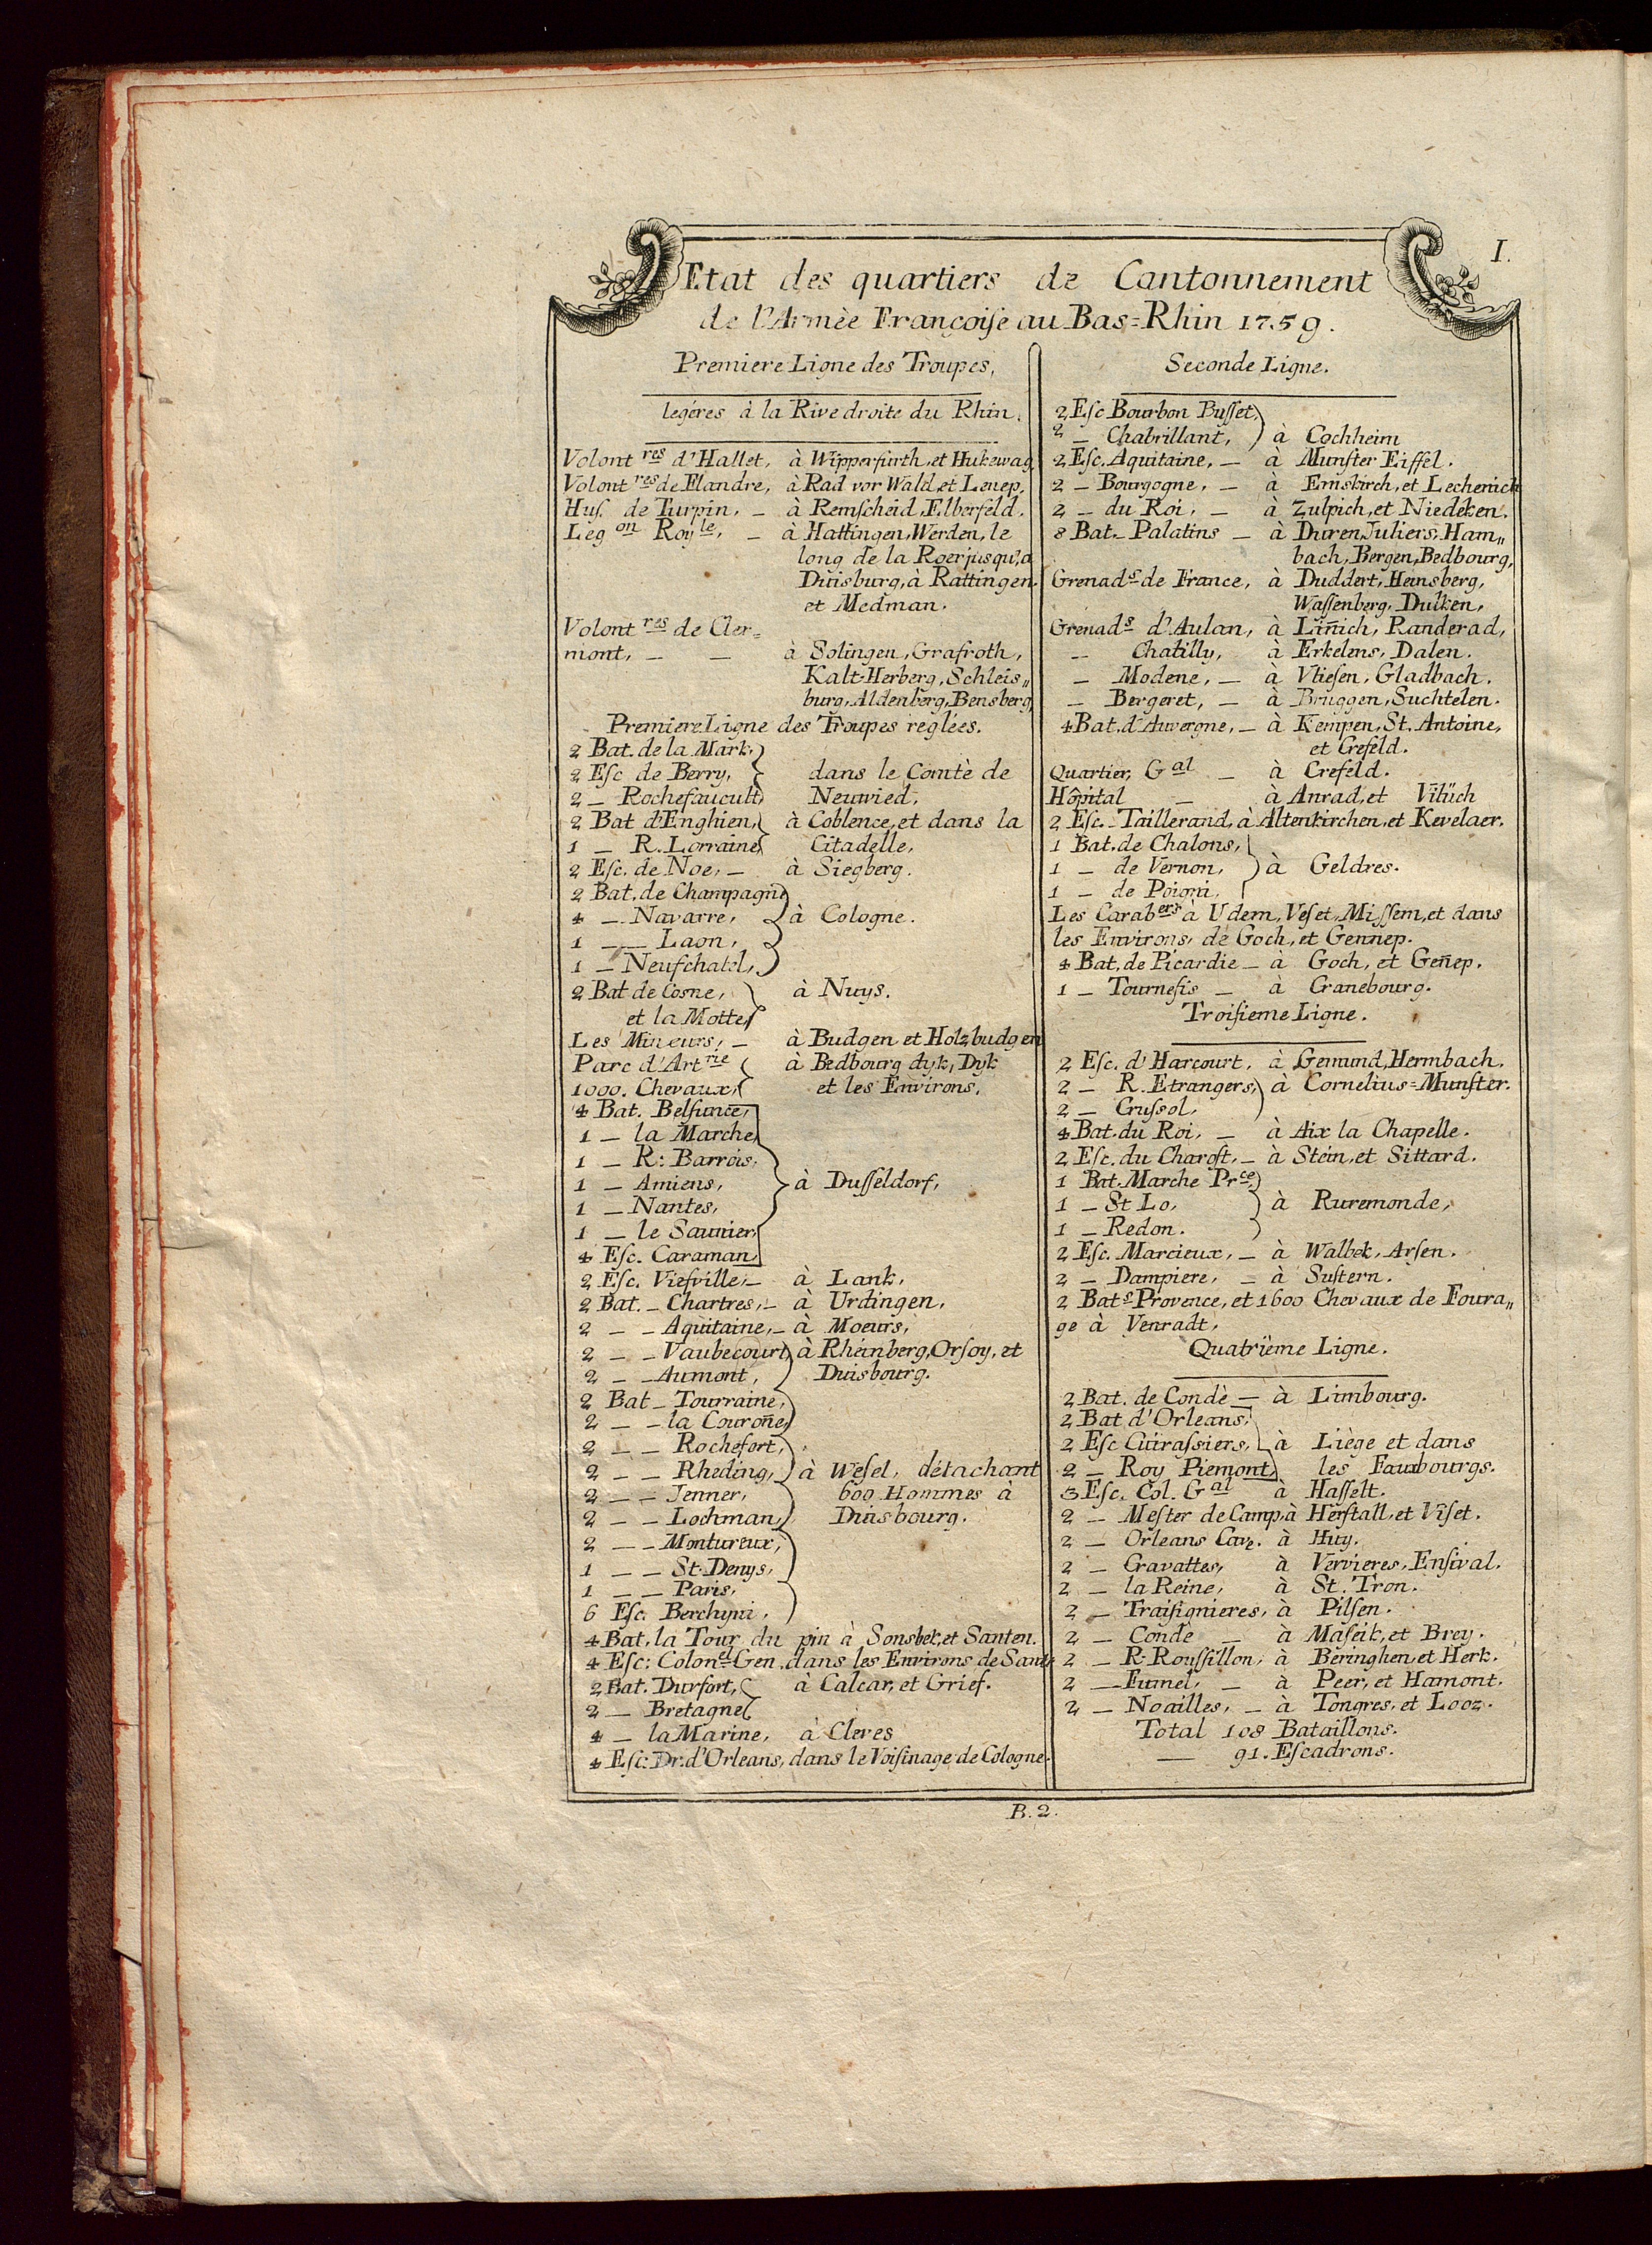 I.
Etat des quartiers de Cantonnement
de l'Armèe Françoiſe au Bas=Rhin 1759.
Premiere Ligne des Troupes,
legéres à la Rive droite du Rhin.
Volont res d'Hallet, à Wipperfurth, et Hukewag
Volont res de Flandre, à Rad vor Wald, et Lenep,
Huſ. de Turpin, _ à Remſcheid, Elberfeld.
Leg on Roy le, _ à Hattingen, Werden, le
long de la Roer jusqu,'a
Duisburg, à Rattingen.
et Medman.
Volont res de Cler=
mont, _ _ à Solingen, Grafroth,
Kalt-Herberg, Schleis„
burg, Aldenberg, Bensberg,
Premiere Ligne des Troupes reglées.
2 Bat. de la Mark,
2 Eſc de Berry, dans le Comtè de
2 _ Rochefaucult, Neuwied,
2 Bat d'Enghien, à Coblence, et dans la
1 _ R. Lorraine, Citadelle,
2 Eſc. de Noe, _ à Siegberg.
2 Bat. de Champagne
4 _ Navarre, à Cologne.
1 _ _ Laon,
1 _ Neufchatel,
2 Bat de Cosne, à Nuys.
et la Motte,
Les Mineurs, _ à Budgen et Holzbudgen
Parc d'Art rie à Bedbourg dyk, Dyk
1000. Chevaux, et les Environs,
4 Bat. Belſunce,
1 _ la Marche,
1 _ R: Barrois,
1 _ Amiens, à Duſſeldorf,
1 _ Nantes,
1 _ le Saunier,
4 Eſc. Caraman,
2 Eſc. Vieſville, _ à Lank,
2 Bat. _ Chartres, _ à Urdingen,
2 _ _ Aquitaine, _ à Moeurs,
2 _ _ Vaubecourt, à Rheinberg, Orſoy, et
2 _ _ Aumont, Duisbourg.
2 Bat _ Tourraine,
2 _ _ la Couroñe,
2 _ _ Rochefort,
2 _ _ Rheding, à Weſel, détachant
2 _ _ Jenner, 600 Hommes à
2 _ _ Lochman, Duisbourg.
2 _ _ Montureux,
1 _ _ St. Denys,
1 _ _ Paris,
6 Eſc. Berchyni,
4 Bat, la Tour du pin à Sonsbek, et Santen.
4 Eſc: Colonel Gen. dans les Environs de Sant.
2 Bat. Durfort, à Calcar, et Grief.
2 _ Bretagne,
4 _ la Marine, à Cleves
4 Eſc: Dr. d'Orleans, dans le Voiſinage de Cologne.
Seconde Ligne.
2 Eſc Bourbon Buſſet,
2 _ Chabrillant, à Cochheim
2 Eſc. Aquitaine, _ à Munſter Eiffel.
2 _ Bourgogne, _ à Emskirch, et Lechenich
2 _ du Roi, _ à Zulpich, et Niedeken.
8 Bat. _ Palatins _ à Duren, Juliers, Ham„
bach, Bergen, Bedbourg,
Grenads de France, à Duddert, Heinsberg,
Waſſenberg, Dulken,
Grenads d'Aulan, à Liñich, Randerad,
_ Chatilly, à Erkelens, Dalen.
_ Modene, _ à Vlieſen, Gladbach.
_ Bergeret, _ à Bruggen, Suchtelen.
4 Bat. d'Auvergne, _ à Kempen, St. Antoine,
et Crefeld.
Quartier, Gal _ à Crefeld.
Hôpital _ à Anrad, et Vilüch
2 Eſc. _ Taillerand, à Altenkirchen, et Kevelaer.
1 Bat. de Chalons,
1 _ de Vernon, à Geldres.
1 _ de Poigni,
Les Carabers à Udem, Veſet, Miſſem, et dans
les Environs, de Goch, et Gennep.
4 Bat, de Picardie _ à Goch, et Geñep.
1 _ Tourneſis _ à Cranebourg.
Troiſieme Ligne.
2 Eſc. d'Harcourt, à Gemund, Hermbach.
2 _ R. Etrangers, à Cornelius=Munſter.
2 _ Cruſsol,
4 Bat. du Roi, _ à Aix la Chapelle.
2 Eſc. du Charoſt, _ à Stein, et Sittard.
1 Bat. Marche Prce,
1 _ St Lo, à Ruremonde,
1 _ Redon.
2 Eſc. Marcieux, _ à Walbek, Arſen.
2 _ Dampiere, _ à Suſtern.
2 Bats Provence, et 1600 Chevaux de Foura„
ge à Venradt,
Quatrïeme Ligne.
2 Bat. de Condè _ à Limbourg.
2 Bat d'Orleans,
2 Eſc Cuiraſsiers, à Liège et dans
2 _ Roy Piemont, les Fauxbourgs.
3 Eſc. Col. Gal à Haſſelt.
2 _ Meſter de Camp, à Herſtall, et Viſet.
2 _ Orleans Cav. à Huy.
2 _ Cravattes, à Vervieres, Enſival.
2 _ la Reine, à St. Tron.
2 _ Traiſignieres, à Pilſen.
2 _ Condè _ à Maſeik, et Brey.
2 _ R: Rouſſillon, à Beringhen, et Herk.
2 _ Fumel, _ à Peer, et Hamont.
2 _ Noailles, _ à Tongres, et Looz.
Total 108 Bataillons.
_ 91. Eſcadrons.
B. 2.